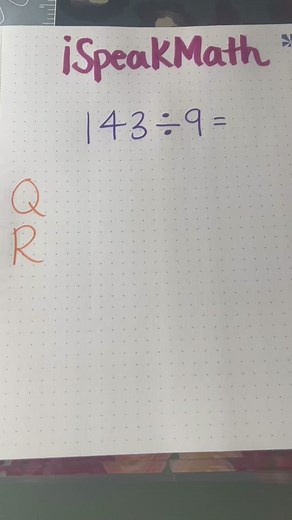 iSpeakMath
143÷9=
Q
R